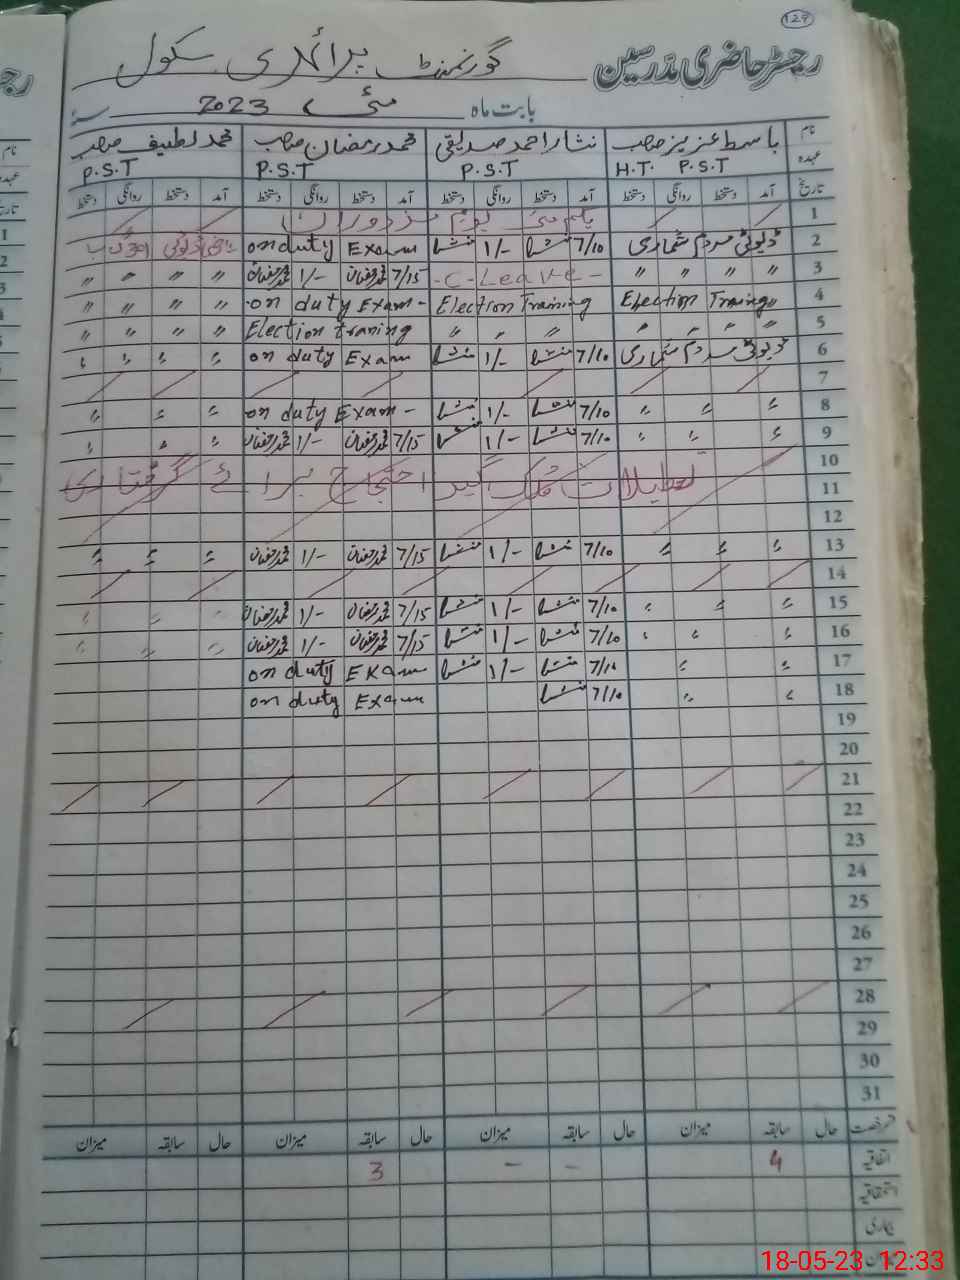 129
رجسٹر حاضری مدرسین گورنمنٹ پرائمری سکول
بابت ماہ مئی 2023
نام باسط عزیز صاحب نثار احمد صدیقی محمد رمضان صاحب محمد لطیف صاحب
عہدہ H.T. P.S.T P.S.T P.S.T P.S.T
تاریخ آمد دستخط روانگی دستخط آمد دستخط روانگی دستخط آمد دستخط روانگی دستخط آمد دستخط روانگی دستخط
1 یکم مئی یوم مزدوراں
2 ڈیوٹی مردم شماری 7/10 1/- on duty Exam
3 〃 〃 〃 〃 -C-Leave- 7/15 محمد رمضان 1/- محمد رمضان 〃 〃 〃 〃
4 Election Traning 〃 Election Training on duty Exam - 〃 〃 〃 〃
5 〃 〃 〃 〃 〃 〃 Election traning 〃 〃 〃 〃
6 ڈیوٹی مردم شماری 7/10 1/- on duty Exam 〃 〃 〃 〃
7
8 〃 〃 〃 7/10 1/- on duty Exam - 〃 〃 〃
9 〃 〃 〃 7/10 1/- 7/15 محمد رمضان 1/- محمد رمضان 〃 〃 〃
10
11 تعطیلات ملک گیر احتجاج برائے گرفتاری
12
13 〃 〃 〃 7/10 1/- 7/15 محمد رمضان 1/- محمد رمضان 〃 〃 〃
14
15 〃 〃 〃 7/10 1/- 7/15 محمد رمضان 1/- محمد رمضان 〃 〃 〃
16 〃 〃 〃 7/10 1/- 7/15 محمد رمضان 1/- محمد رمضان 〃 〃 〃
17 〃 〃 7/10 1/- on duty Exam
18 〃 〃 7/10 on duty Exam
19
20
21
22
23
24
25
26
27
28
29
30
31
رخصت حال سابقہ میزان حال سابقہ میزان حال سابقہ میزان حال سابقہ میزان
اتفاقیہ 4 - - 3
استحقاقیہ
بیماری
میزان
18-05-23 12:33